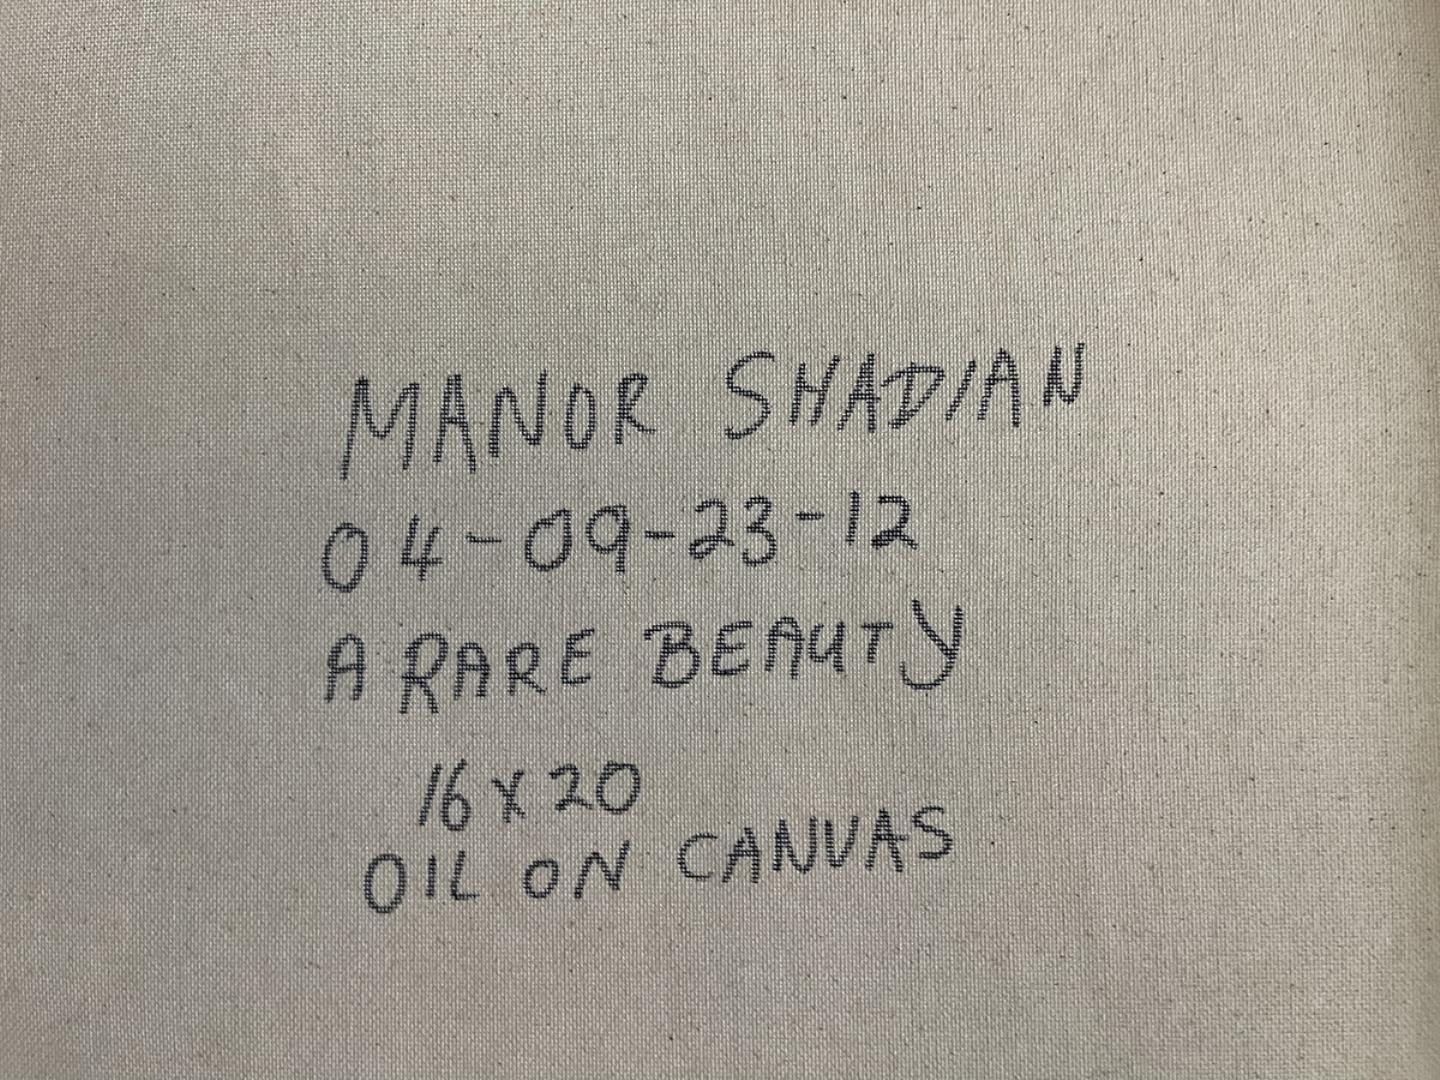 MANOR SHADIAN
04-09-23-12
A RARE BEAUTY
16 x 20
OIL ON CANVAS